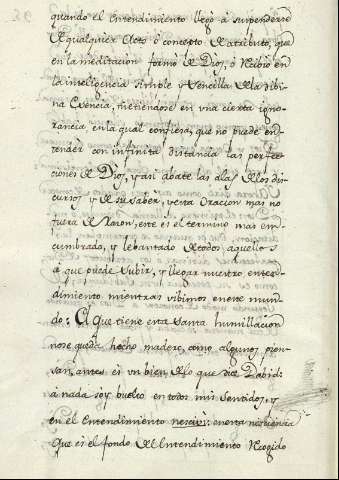 quando el entendimiento llegó á suspenderse
de qualquier Acto ó concepto de atributo, que
en la meditacion formó de Dios, ó recibio en
la inteligencia simple y sencilla de la divi
na Esencia, metiendose en una cierta igno
rancia, en la qual confiesa, que no puede en
tender con infinita distancia las perfec
ciones de Dios, y an abate las alas de los dis
cursos y de su saber, y esta oracion mas no
fuera de razon, este es el termino mas en
cumbrado, y lebantado de todos aquellos
á que puede subir, y llegar nuestro enten
dimiento mientras vibimos en este mun
do: El que tiene esta santa humillacion
no se queda hecho madero, como algunos pien
san, antes es un bien, de lo que dice David:
á nada soy buelto en todos mis sentidos, y
en el entendimiento nescivi: en esta nesciencia
que es el fondo del entendimiento recogido